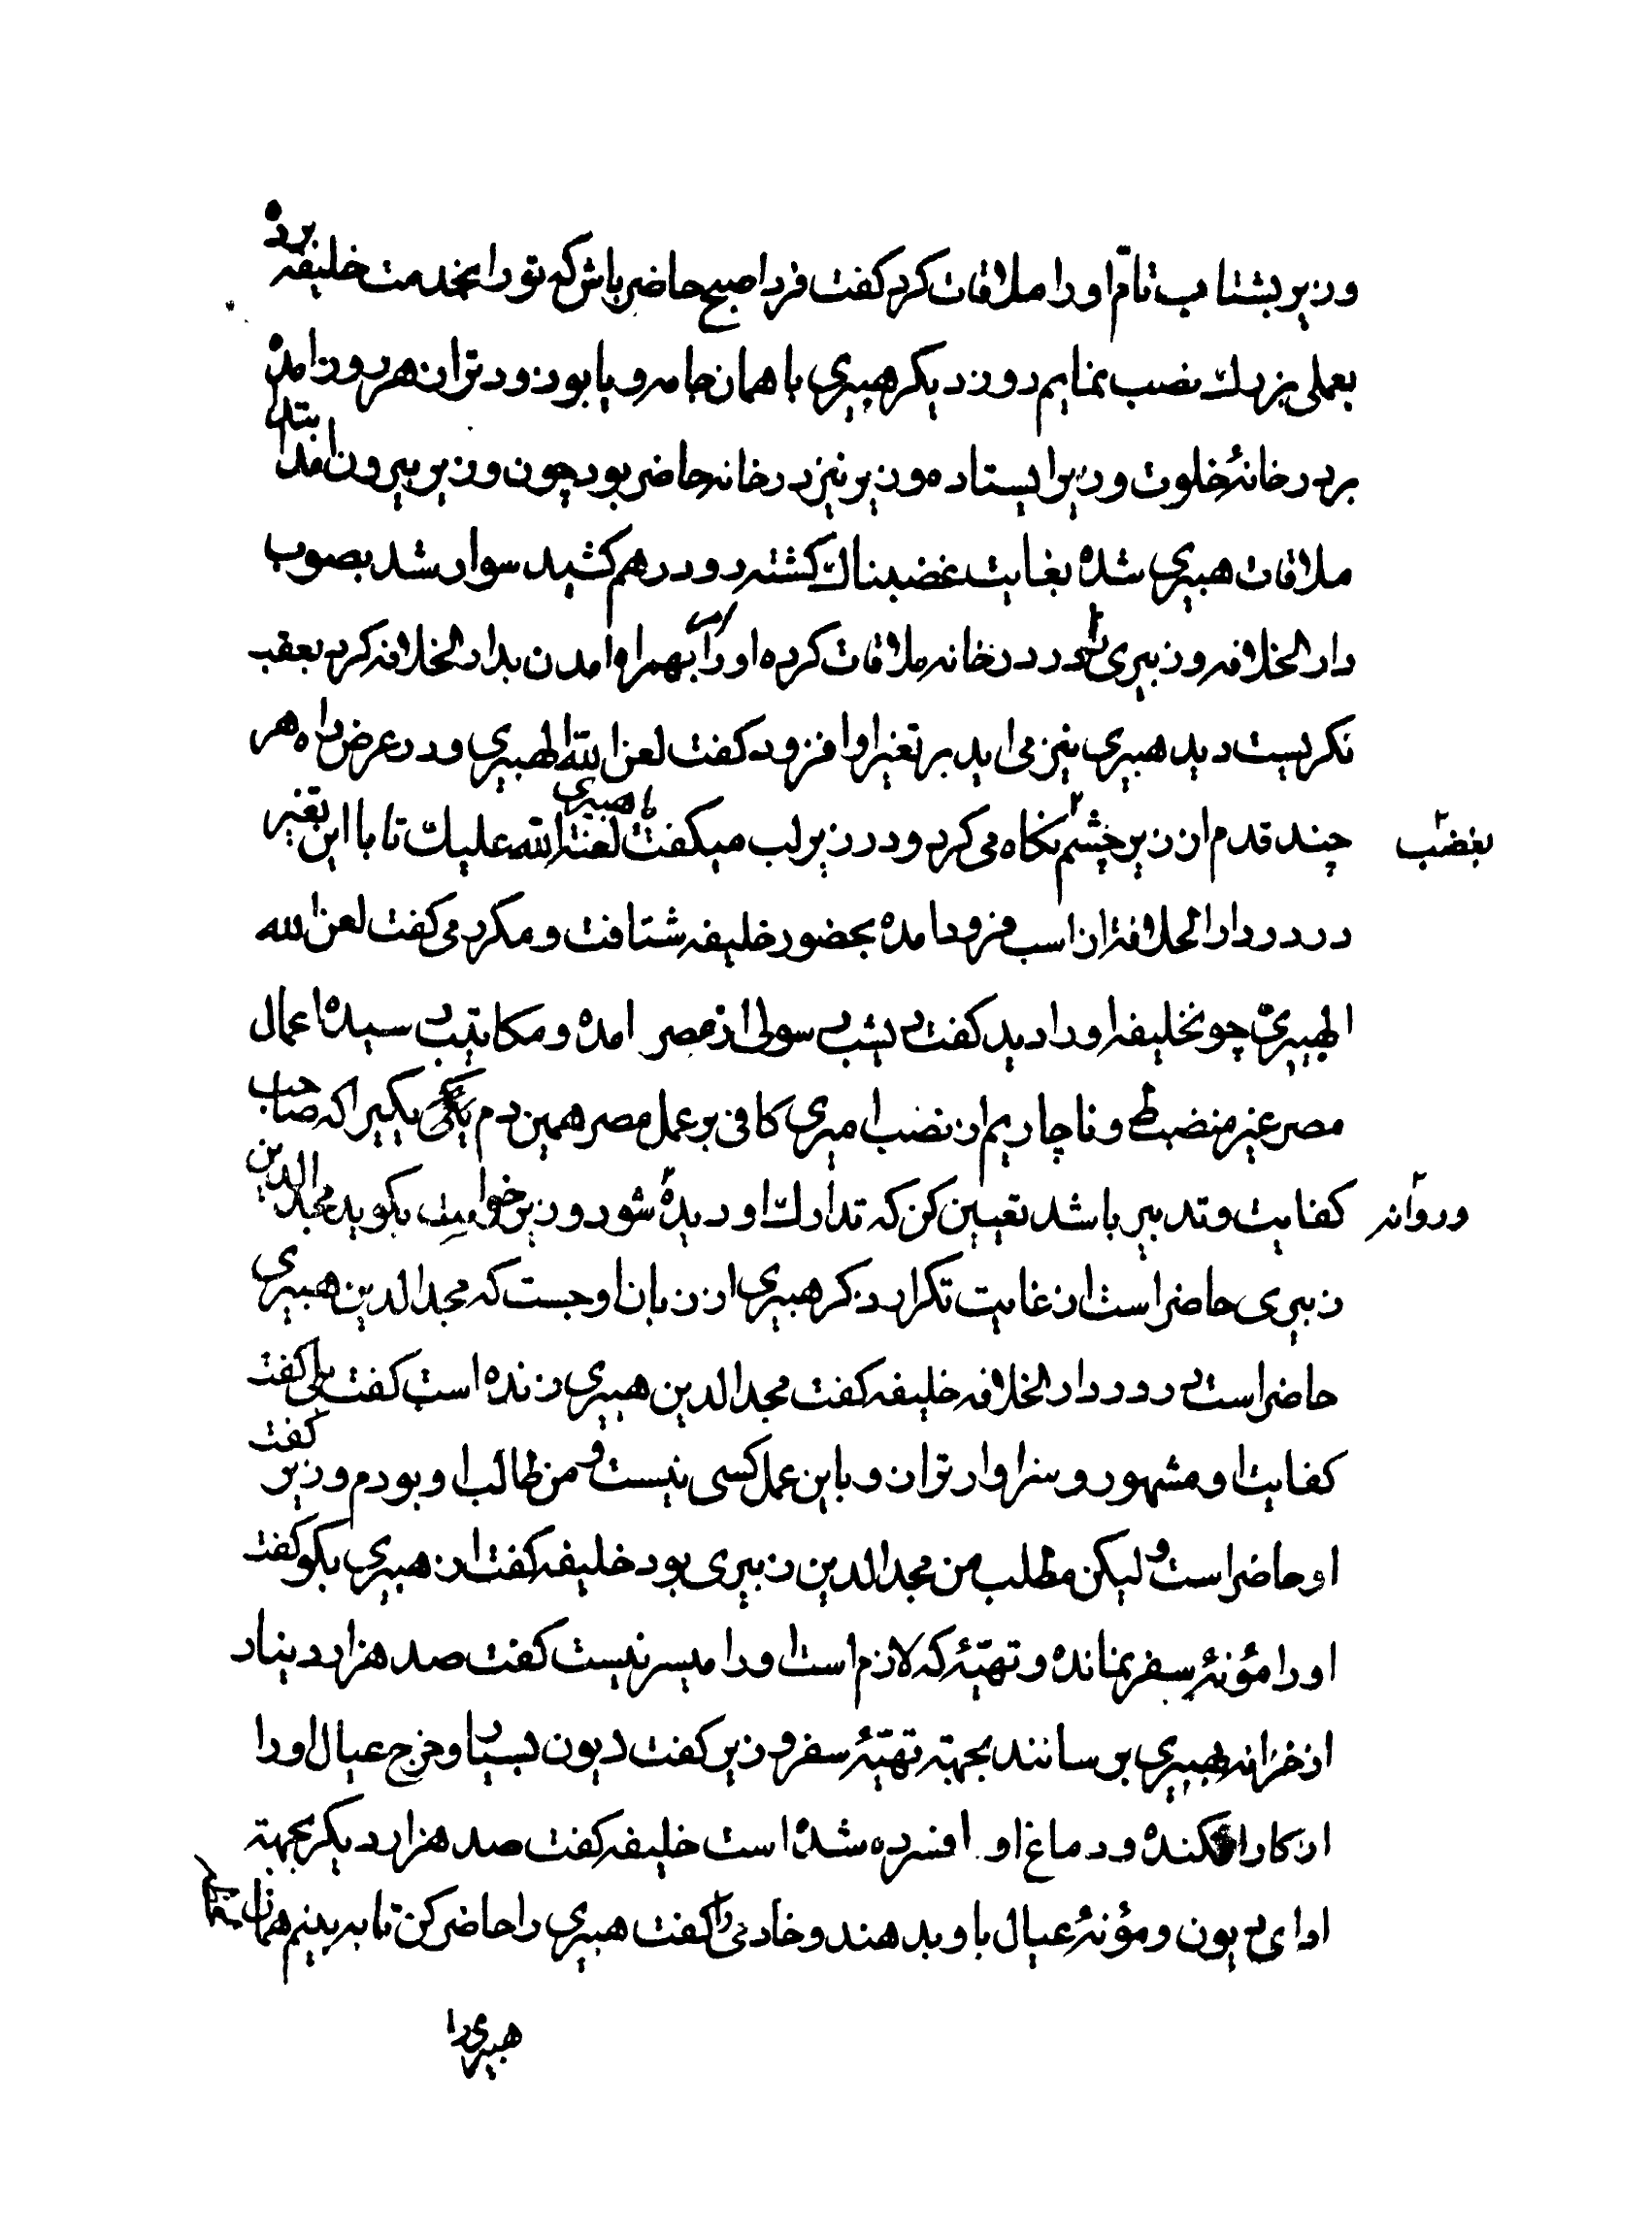 وزیر بشتاب تمام اورا ملاقات کرد کفت فردا صبح حاضر باش که تورا بخدمت خلیفه برده
بعملی بزرك نصب نمایم روز دیکر هبیری با همان جامه و یابو زودتر از هر روز امده
بر در خانهٔ خلوت وزیر ایستاده وزیر نیز در خانه حاضر بود چون وزیر بیرون امد
ملاقات هبیری شده بغایت غضبناك کشته رو درهم کشید سوار شد بصوب
دار الخلافه و زبیری را در در خانه ملاقات کرده اورا بهمراه امدن بدار الخلافه کرد بعقب
نکریست دید هبیری نیز می اید بر تغیر او افزود کفت لعن الله الهبیری و در عرض راه هر
چند قدم از زیر چشم نکاه می کرد و در زیر لب میکفت لعنة الله علیك تا با این تغیر
بغضب
در در دار الخلافه از اسب فرود امده بحضور خلیفه شتافت و مکرر می کفت لعن الله
الهبیری چون خلیفه اورا دید کفت دیشب رسولی از مصر امده و مکاتیب رسیده اعمال
مصر غیر منضبط و ناچاریم از نصب امیری کافی بر عمل مصر همین دم یکی بکیر که صاحب
کفایت و تدبیر باشد تعیین کن که تدارك او دیده شود وزیر خواست بکوید مجد الدین
و روانه
زبیری حاضر است از غایت تکرار ذکر هبیری از زبان او جست که مجد الدین هبیری
حاضر است در در دار الخلافه خلیفه کفت مجد الدین هبیری زنده است کفت بلی کفت
کفایت او مشهور و سزاوارتر از و باین عمل کسی نیست و من طالب او بودم وزیر کفت
او حاضر است و لیکن مطلب من مجد الدین زبیری بود خلیفه کفت از هبیری بکو کفت
اورا مؤنهٔ سفر نمانده و تهیّهٔ که لازم است اورا میسر نیست کفت صد هزار دینار
از خزانه بهبیری برسانند بجهته تهیّهٔ سفر وزیر کفت دیون بسیار و خرج عیال اورا
از کار افکنده و دماغ او افسرده شده است خلیفه کفت صد هزار دیکر بجهته
ادای دیون و مؤنهٔ عیال باو بدهند و خادمی را کفت هبیری را حاضر کن تا به بینم
هبیری را